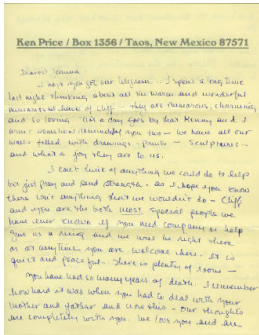 Ken Price / Box 1356 / Taos, New Mexico 87571
Dearest
I hope you got our telegram. I spent a long time
last night thinking about all the warm and wonderful
moments we have of Cliff - they are humorous, charming
and so loving. Not a day goes by that Kenny and I
aren't reminded of you two - we have all our
walls filled with drawings - prints - sculptures -
and what a joy they are to us.
I can't think of anything we could do to help
but just pray and send strength. As I hope you know
there isn't anything that we wouldn't do - Cliff
and you are the both most special people we
have ever known. If you need company or help
give us a ring and we will be right there
or at anytime you are welcome here. It is
quiet and peaceful. There is plenty of room -
You have had so many years of death. I remember
how hard it was when you had to deal with your
mother and father and - Our thoughts
are completely with you. We love you and are